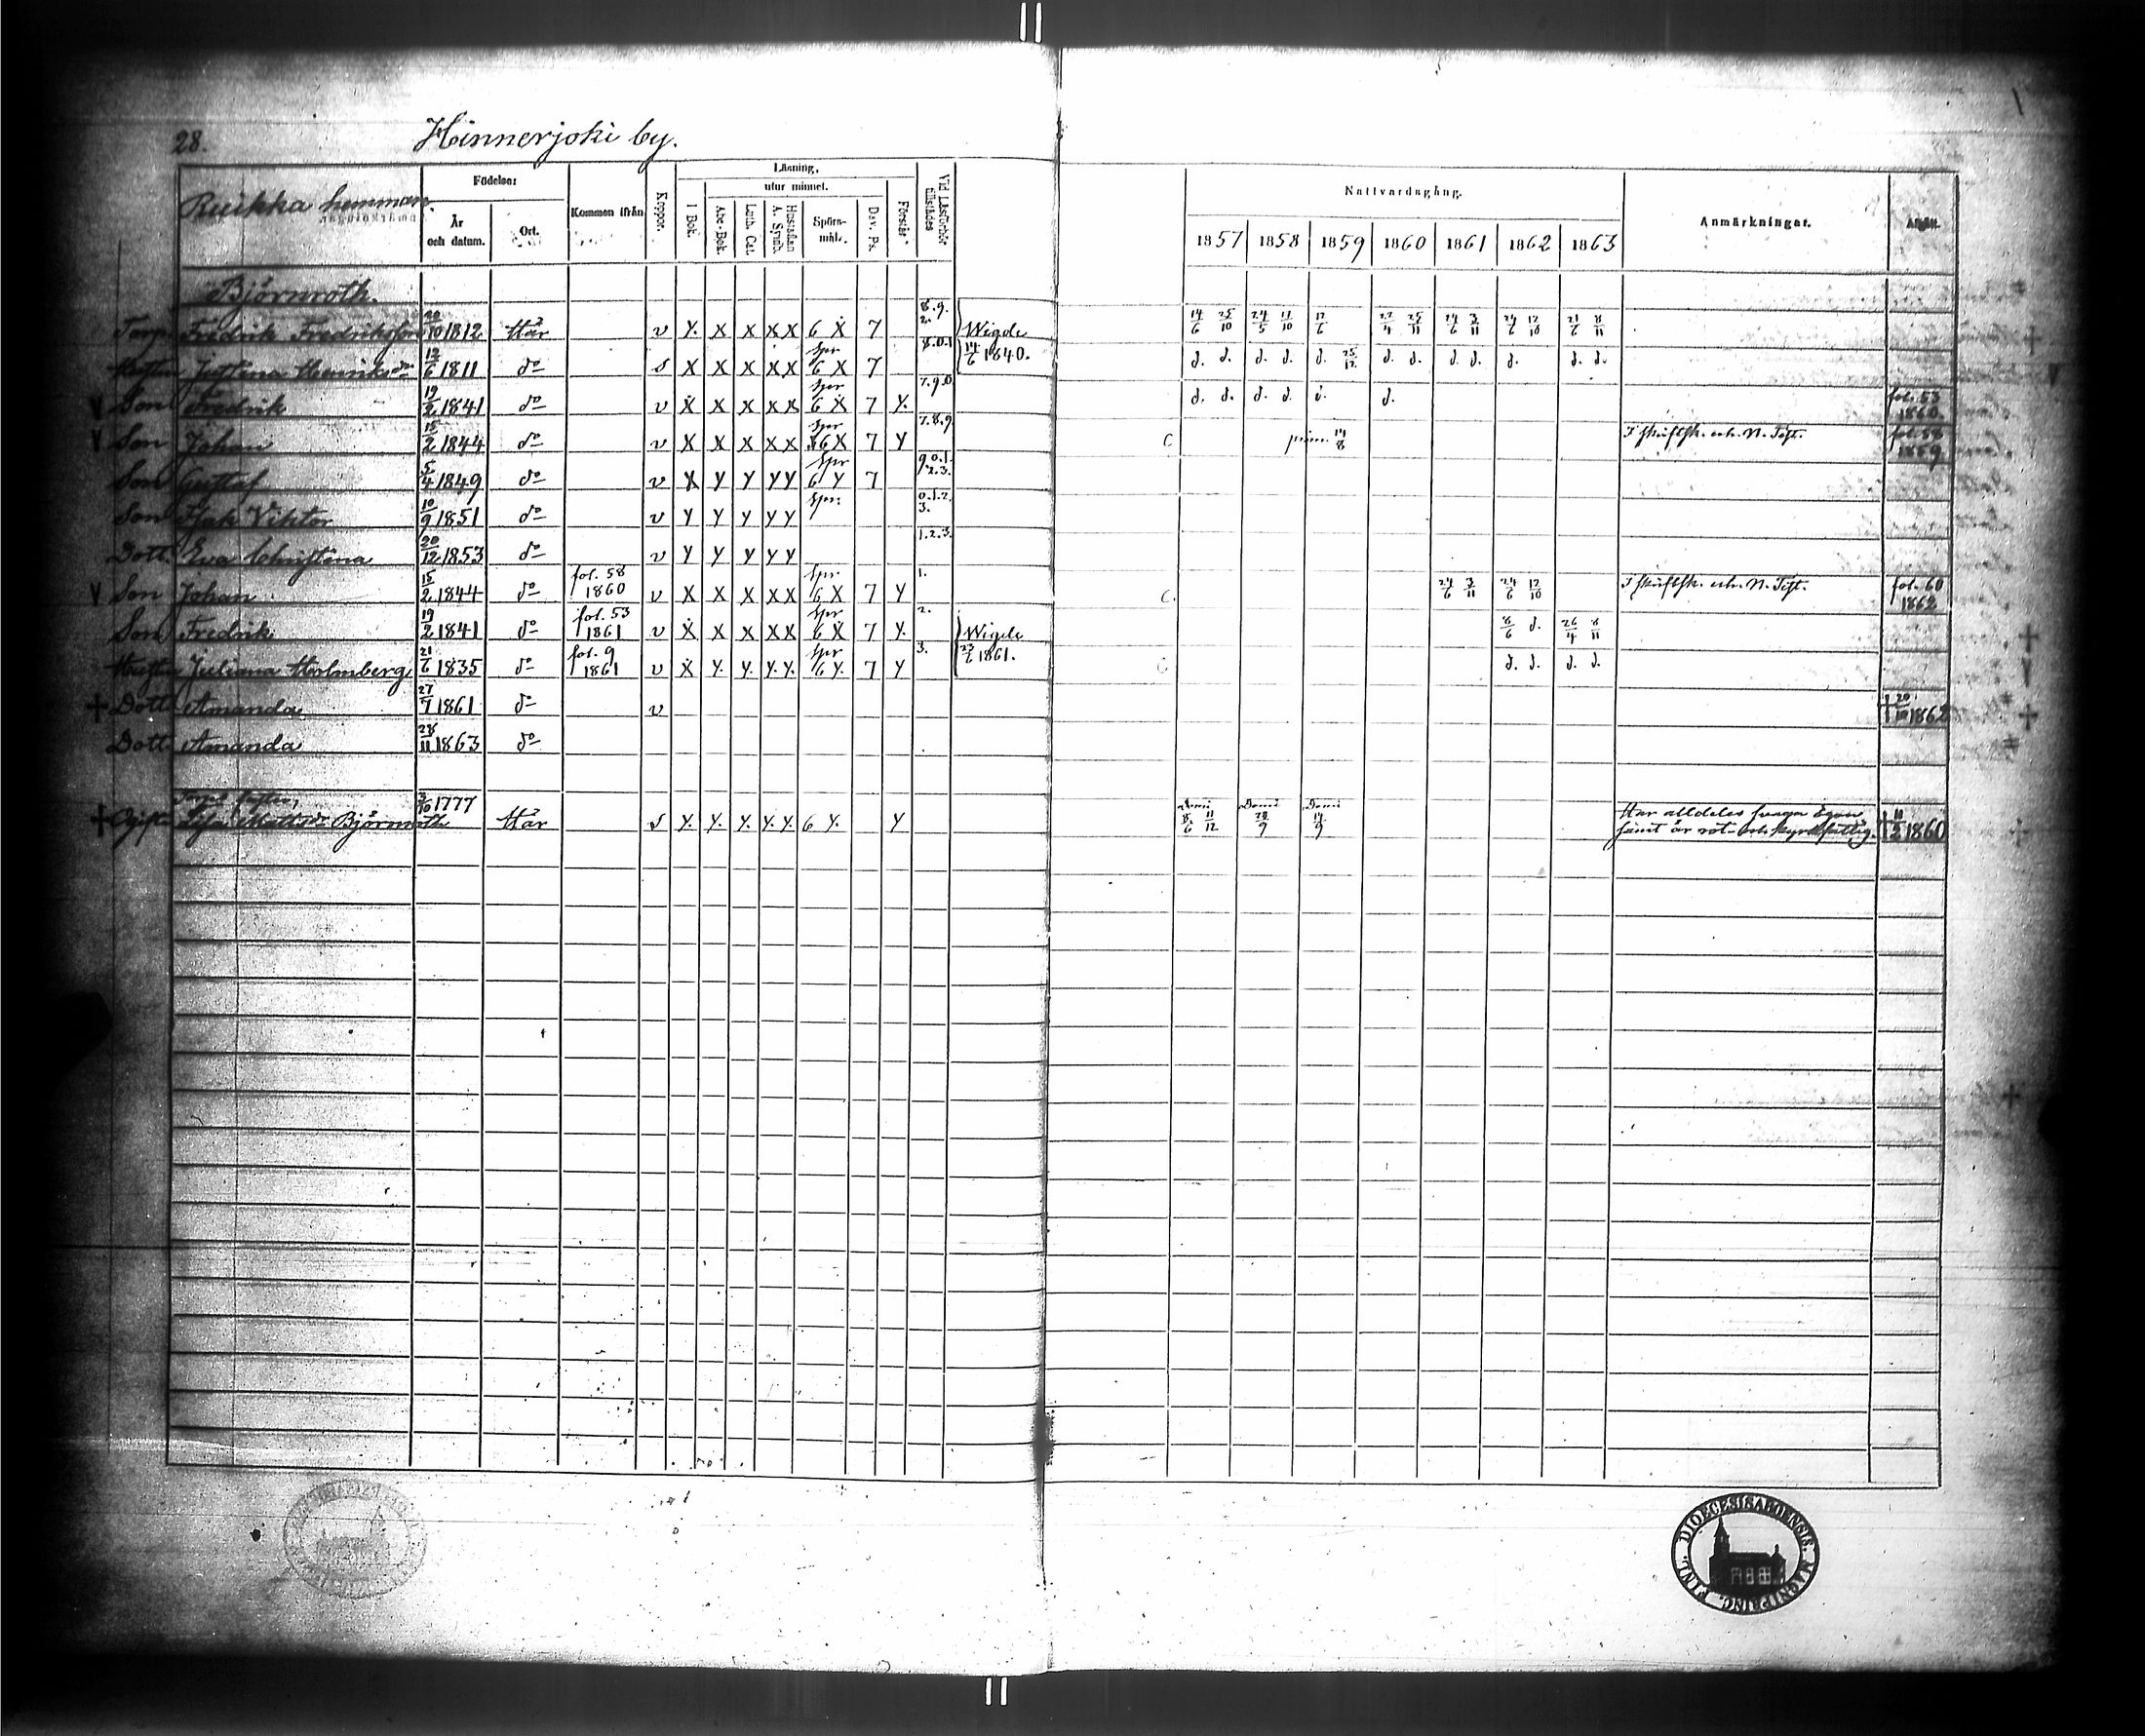 28.
Hinnerjoki by.
Ruikka hemman.
Födelse:
År och datum.
Ort.
Kommen ifrån
Koppor.
Läsning,
utur minnet.
I Bok.
Abc-Bok.
Luth. Cat.
Hustaflan A. Symb.
Spörsmål.
Dav. Ps.
Förstår
Vid Läsförhör tillstädes
Nattvardsgång.
1857 1858 1859 1860 1861 1862 1863
Anmärkningar.
Afgått.
Björnroth.
Torp. Fredrik Fredriksson 20/10 1812 Här v Y. X X X X 6 X 7 8.9. 2. Wigde 14/6 1840. 14/6 25/10 24/5 11/10 12/6 22/4 25/11 24/6 3/11 24/6 12/10 21/6 8/11
Hustru Justina Henriksdr 12/6 1811 do s X X X X X Spr 6 X 7 8.0.1 d. d. d. d. d. 25/12 d. d. d. d. d. d. d.
V Son Fredrik 19/2 1841 do v X X X X X Spr 6 X 7 Y. 7.9.0 d. d. d. d. d. d. fol. 53 1860.
V Son Johan 15/2 1844 do v X X X X X Spr 6 X 7 Y 7.8.9 C prim. 14/8 fol. 58 1859
Son Gustaf 5/4 1849 do v X Y Y Y Y Spr 6 Y 7 9.0.1. 2.3.
Son Isak Viktor 10/9 1851 do v Y Y Y Y Y Spr: 0.1.2. 3.
Dott. Eva Christina 20/12 1853 do v Y Y Y Y Y 1.2.3.
V Son Johan 15/2 1844 do fol. 58 1860 v X X X X X Spr 6 X 7 Y 1. C. 24/6 3/11 24/6 12/10 fol. 60 1862
Son Fredrik 19/2 1841 do fol. 53 1861 v X X X X X Spr 6 X 7 Y. 2. Wigde 8/6 d. 26/4 8/11
Hustru Juliana Holmberg 21/6 1835 do fol. 9 1861 v X Y. Y. Y. Y. Spr 6 Y. 7 Y 3. 1861. C d. d. d. d.
+ Dott. Amanda 27/7 1861 do v + 20/10 1862
Dott. Amanda 28/11 1863 do
+ Ogifta Mattsdr Björnroth 3/10 1777 Här s Y. Y. Y. Y. Y. 6 Y. Y Domi 8/6 11/12 Domi 28/9 Domi 14/9 Har alldeles svaga ögon samt är rot- och kyrkfattig. + 11/2 1860
FINL. DIOECESIS ABOENSIS. MAGNI PRINC.